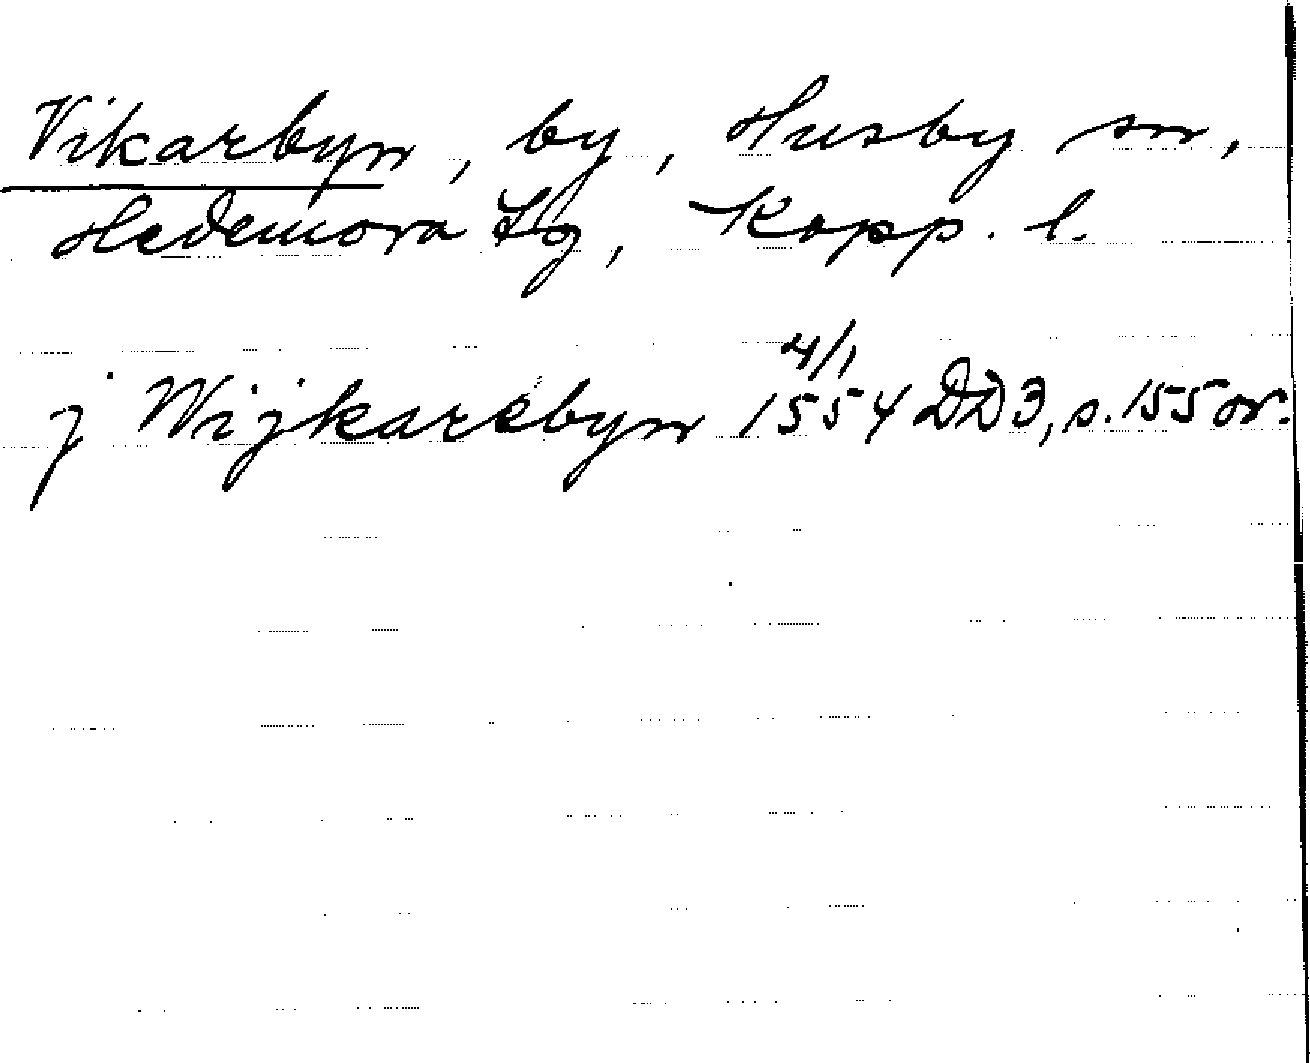 Vikarbyn, by, Husby sn,
Hedemora tg, Kopp. l.
j Wijkarebyn 4/1 1554 DD3, s. 155 or.